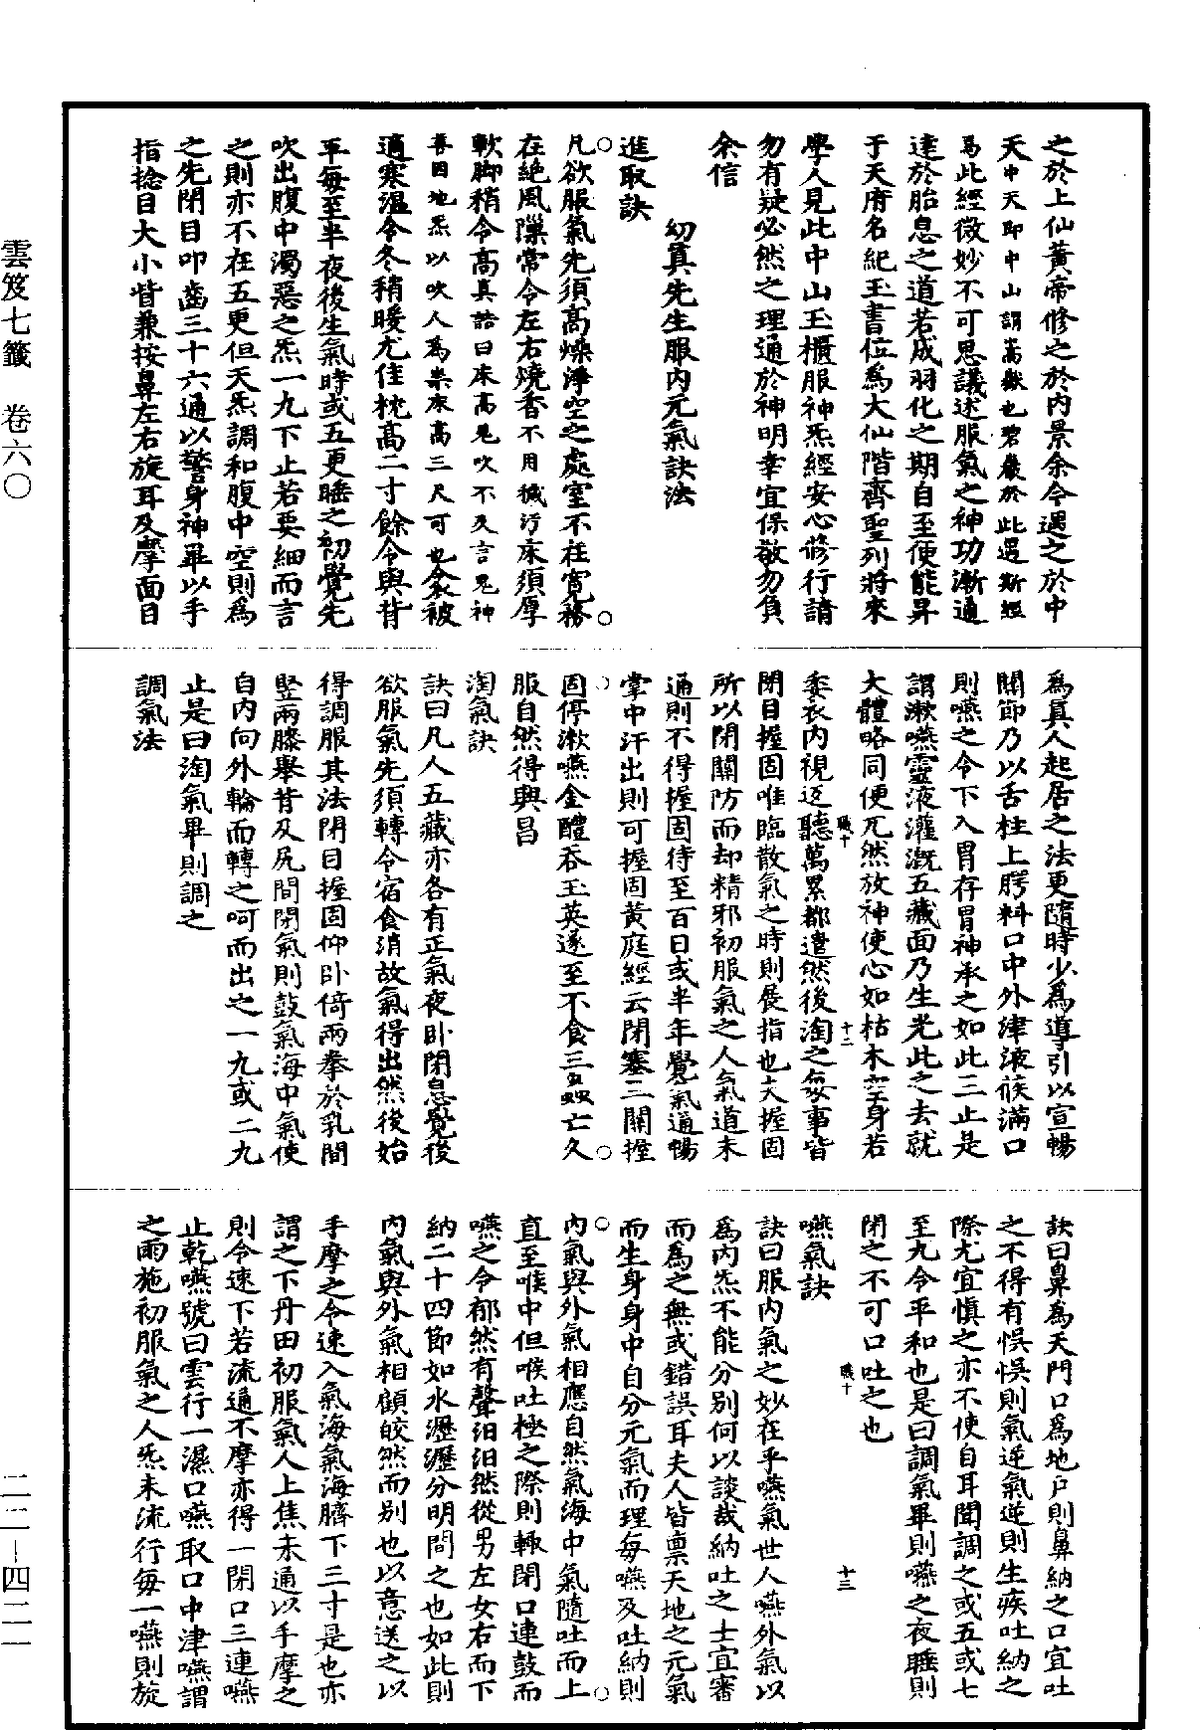 之於上仙黃帝修之於內景余今遇之於中
天中天即中山謂嵩嶽也碧巖於此遇斯經
焉此經微妙不可思議述服氣之神功漸通
達於胎息之道若成羽化之期自至便能昇
于天府名紀玉書位為大仙階齊聖列將來
學人見此中山玉櫃服神炁經安心修行請
勿有疑必然之理通於神明幸宜保敬勿負
余信
幻真先生服內元氣訣法
進取訣
凡欲服氣先須高燥淨空之處室不在寬務
在絕風隙常令左右燒香不用穢污床須厚
軟脚稍令高真誥曰床高鬼吹不及言鬼神
善因地炁以吹人為祟床高三尺可也衾被
適寒溫令冬稍暖尤佳枕高二寸餘令與背
平每至半夜後生氣時或五更睡之初覺先
吹出腹中濁惡之炁一九下止若要細而言
之則亦不在五更但天炁調和腹中空則為
之先閉目叩齒三十六通以警身神畢以手
指捻目大小眥兼按鼻左右旋耳及摩面目
為真人起居之法更隨時少為導引以宣暢
關節乃以舌柱上腭料口中外津液候滿口
則嚥之令下入胃存胃神承之如此三止是
謂漱嚥靈液灌溉五藏面乃生光此之去就
大體略同便兀然放神使心如枯木空身若
職十 十二
委衣內視返聽萬累都遣然後淘之每事皆
閉目握固唯臨散氣之時則展指也夫握固
所以閉關防而却精邪初服氣之人氣道未
通則不得握固待至百日或半年覺氣通暢
掌中汗出則可握固黃庭經云閉塞三關握
固停漱嚥金醴吞玉英遂至不食三蟲亡久
服自然得興昌
淘氣訣
訣曰凡人五藏亦各有正氣夜卧閉息覺後
欲服氣先須轉令宿食消故氣得出然後始
得調服其法閉目握固仰卧倚兩拳於乳間
竪兩膝舉背及尻間閉氣則鼓氣海中氣使
自內向外輪而轉之呵而出之一九或二九
止是曰淘氣畢則調之
調氣法
訣曰鼻為天門口為地戶則鼻納之口宜吐
之不得有悞悞則氣逆氣逆則生疾吐納之
際尤宜慎之亦不使自耳聞調之或五或七
至九令平和也是曰調氣畢則嚥之夜睡則
閉之不可口吐之也
職十 十三
嚥氣訣
訣曰服內氣之妙在乎嚥氣世人嚥外氣以
為內炁不能分別何以談哉納吐之士宜審
而為之無或錯誤耳夫人皆稟天地之元氣
而生身身中自分元氣而理每嚥及吐納則
內氣與外氣相應自然氣海中氣隨吐而上
直至喉中但喉吐極之際則輒閉口連鼓而
嚥之令郁然有聲汩汩然從男左女右而下
納二十四節如水瀝瀝分明聞之也如此則
內氣與外氣相顧皎然而別也以意送之以
手摩之令速入氣海氣海臍下三寸是也亦
謂之下丹田初服氣人上焦未通以手摩之
則令速下若流通不摩亦得一閉口三連嚥
止乾嚥號曰雲行一濕口嚥取口中津嚥謂
之雨施初服氣之人炁未流行每一嚥則旋
雲笈七籤 卷六〇
二二—四二一